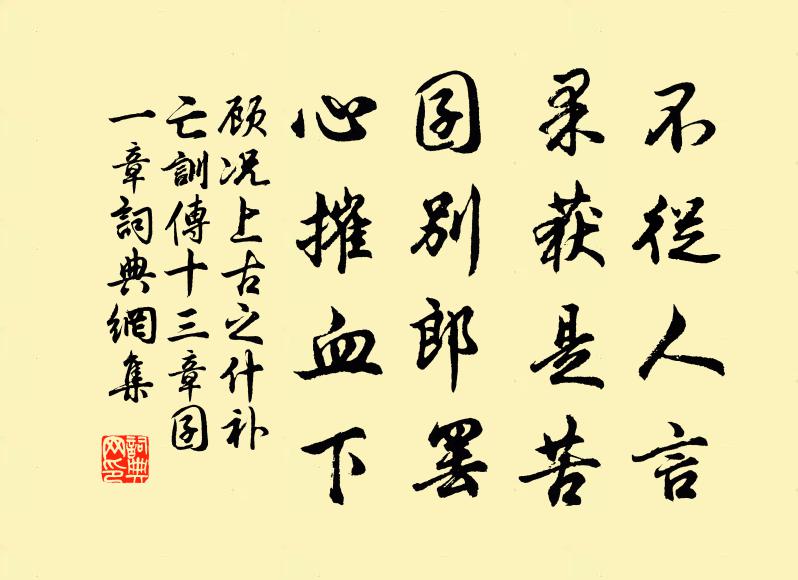 不從人言
果获是苦
囝別郎罢
心摧血下
顾况上古之什补
亡訓傳十三章囝
一章詞典網集
詞典网印